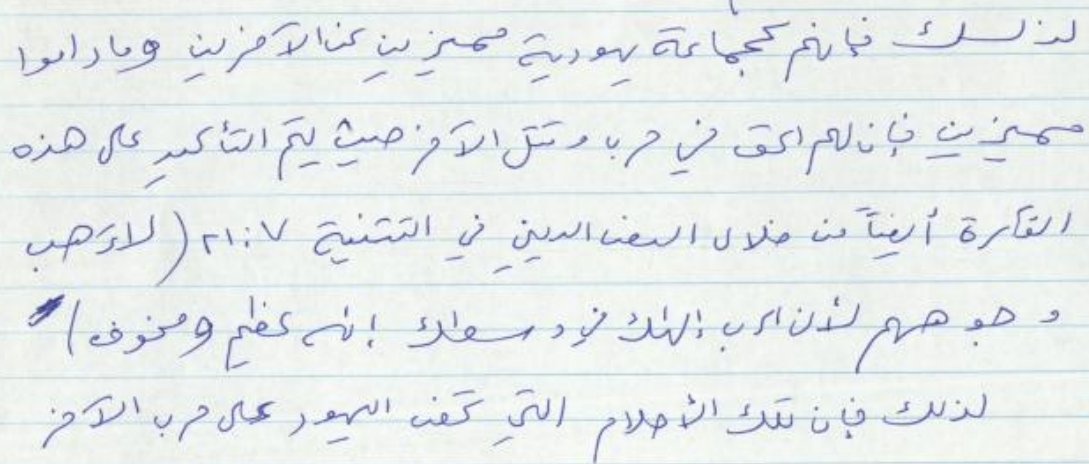 لذلك فإنهم كجماعة يهودية مميزين عن الآخرين وما داموا
مميزين فإن لهم الحق في حرب وقتل الآخر حيث يتم التأكيد على هذه
الفكرة أيضاً من خلال النص الديني في التثنية ٢١:٧ (لا ترهب
وجوههم لأن الرب إلهك في وسطك إله عظيم ومخوف)
لذلك فإن تلك الأحلام التي تحض اليهود على حرب الآخر